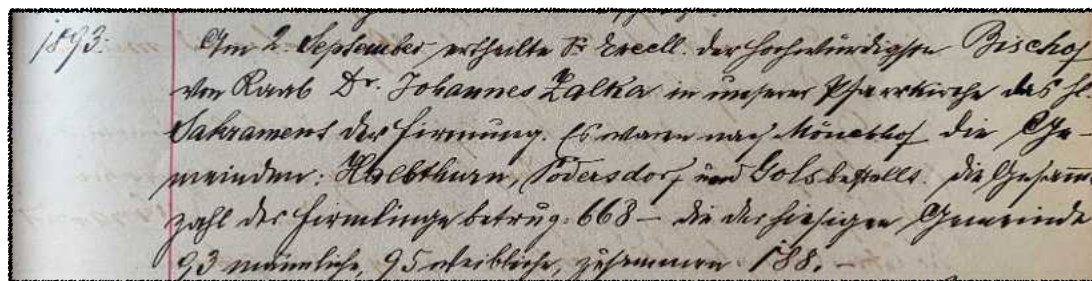 1893:
Am 2. September ertheilte Se Excell. der hochwürdigste Bischof
von Raab Dr. Johannes Zalka in unserer Pfarrkirche das hl.
Sakrament der Firmung. Es waren nach Mönchhof die Ge-
meinden: Halbthurn, Podersdorf und Gols bestellt. Die Gesammt
zahl der Firmlinge betrug: 668 – die der hiesigen Gemeinde
93 männliche, 95 weibliche, zusammen 188. –